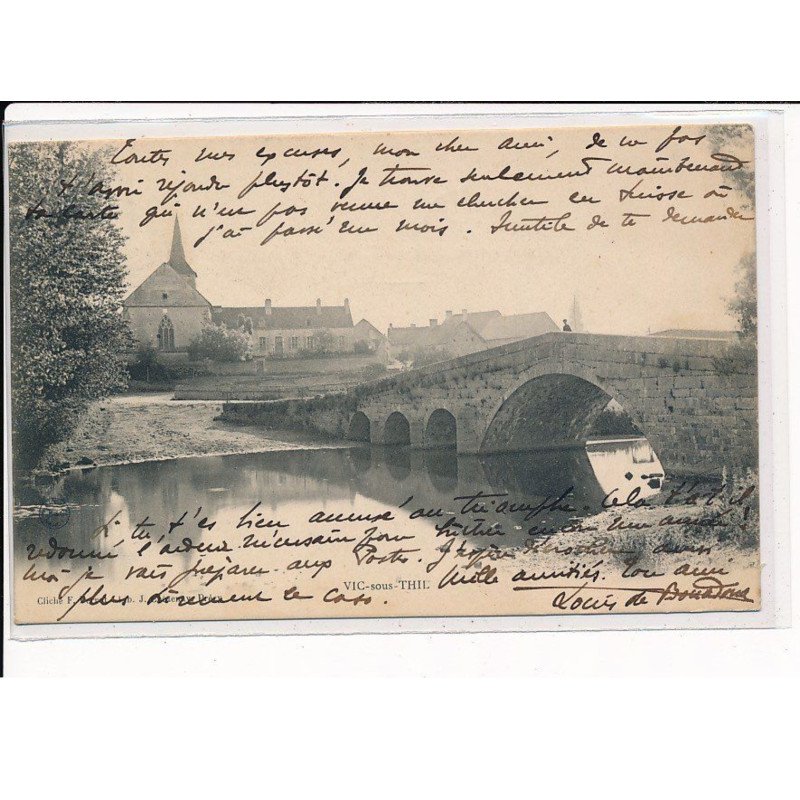 Toutes mes excuses, mon cher ami, de ne pas
t'avoir répondu plus tôt. Je trouve seulement maintenant
ta carte qui m'en pas venue me chercher en Suisse où
j'ai passé un mois. Inutile de te demander
si tu t'es bien amusé au triomphe. Cela t'a-t-il
redonné l'ardeur nécessaire pour bûcher encore une année !
Moi je vais préparer aux Postes. J'espère décrocher aussi
plus sûrement le caso. Mille amitiés. Ton ami
Louis de
VIC-sous-THIL
Cliché F.